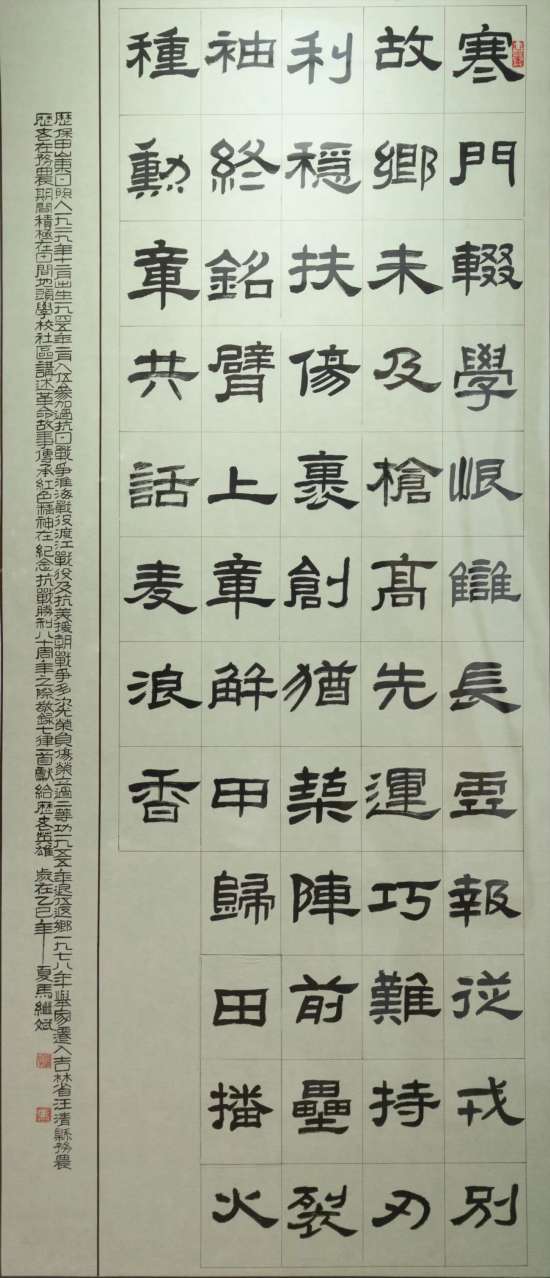 寒門輟學恨讎長雪報從戎別
故鄉未及槍高先運巧難持刃
利穩扶傷裹創猶築陣前壘裂
袖終銘臂上章解甲歸田播火
種勳章共話麦浪香
歷保申山東日照人一九二九年十二月出生一九四五年二月入伍參加過抗日戰爭淮海戰役渡江戰役及抗美援朝戰爭多次光榮負傷榮立過三等功一九五五年退伍返鄉一九七八年舉家遷入吉林省汪清縣務農
歷老在務農期間積極在田間地頭學校社區講述革命故事傳承紅色精神在紀念抗戰勝利八十周年之際敬錄七律一首獻給歷老英雄 歲在乙巳年一夏馬繼斌